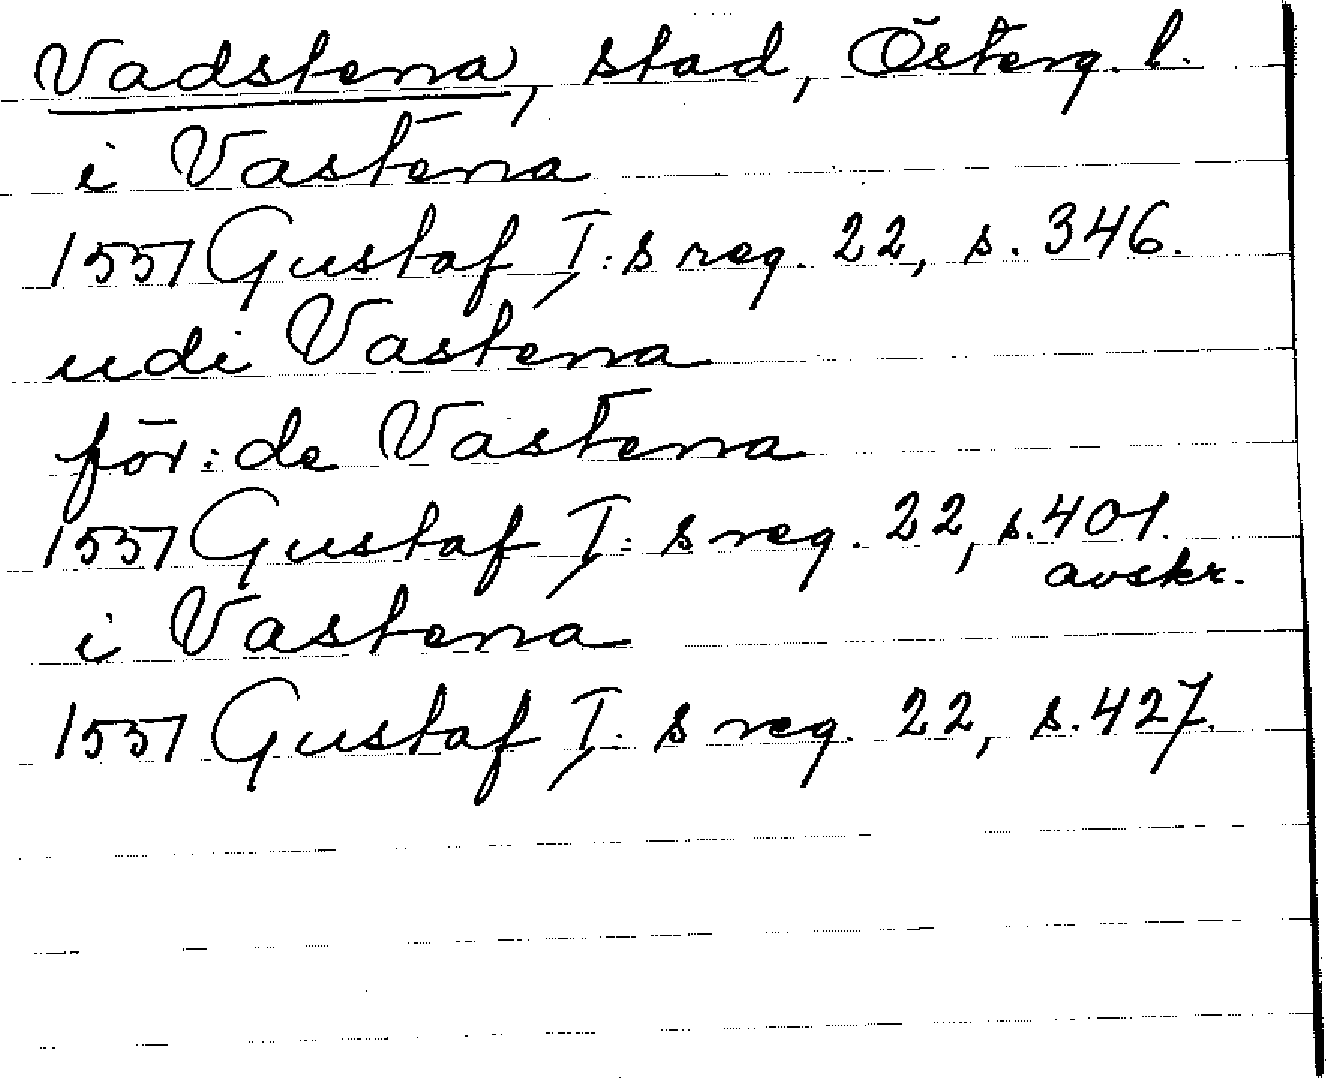 Vadstena, stad, Österg. l.
i Vastena
1551 Gustaf I:s reg. 22, s. 346.
udi Vastena
för: de Vastena
1551 Gustaf I:s reg. 22, s. 401.
avskr.
i Vastena
1551 Gustaf I:s reg. 22, s. 427.